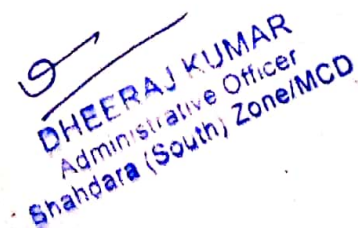 DHEERAJ KUMAR
Administrative Officer
Shahdara (South) Zone/MCD